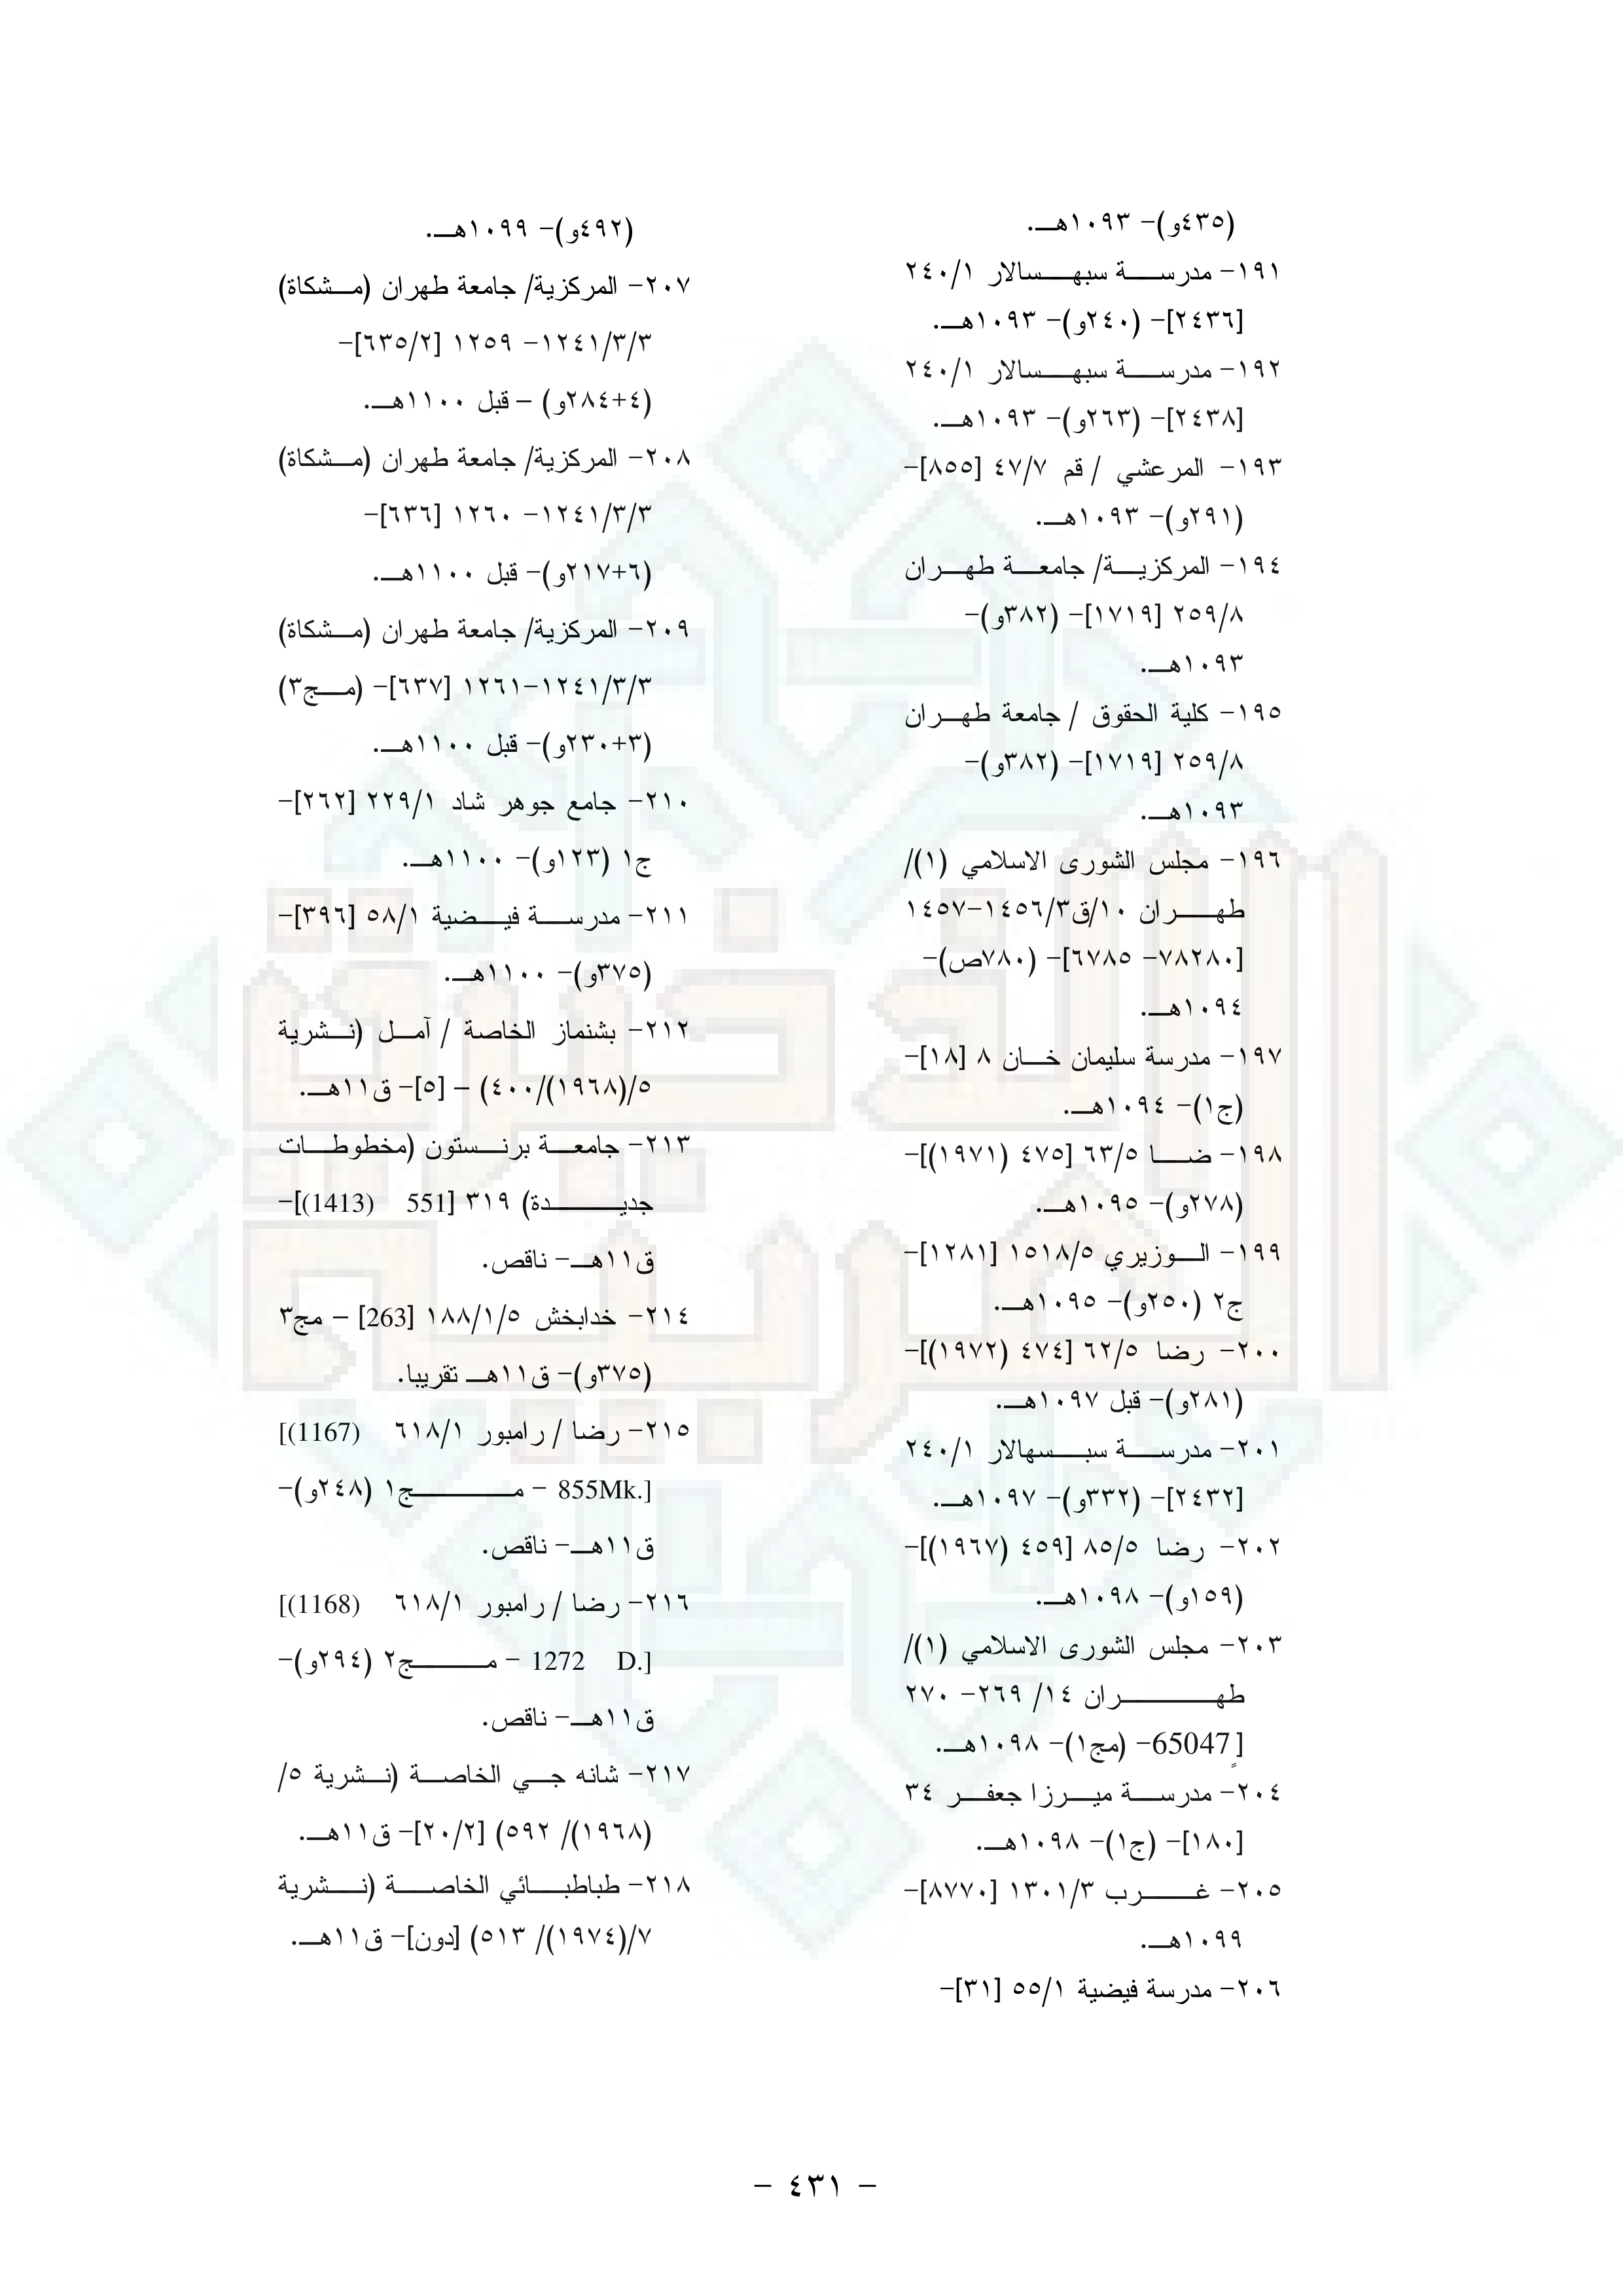 (٤٣٥و)- ١٠٩٣هـ.
١٩١- مدرسة سبهسالار ٢٤٠/١
[٢٤٣٦]- (٢٤٠و)- ١٠٩٣هـ.
١٩٢- مدرسة سبهسالار ٢٤٠/١
[٢٤٣٨]- (٢٦٣و)- ١٠٩٣هـ.
١٩٣- المرعشي / قم ٤٧/٧ [٨٥٥]-
(٢٩١و)- ١٠٩٣هـ.
١٩٤- المركزية/ جامعة طهران
٢٥٩/٨ [١٧١٩]- (٣٨٢و)-
١٠٩٣هـ.
١٩٥- كلية الحقوق / جامعة طهران
٢٥٩/٨ [١٧١٩]- (٣٨٢و)-
١٠٩٣هـ.
١٩٦- مجلس الشورى الاسلامي (١)/
طهران ١٠/ق١٤٥٦/٣-١٤٥٧
[٧٨٢٨٠- ٦٧٨٥]- (٧٨٠ص)-
١٠٩٤هـ.
١٩٧- مدرسة سليمان خان ٨ [١٨]-
(ج١)- ١٠٩٤هـ.
١٩٨- ضا ٦٣/٥ [٤٧٥ (١٩٧١)]-
(٢٧٨و)- ١٠٩٥هـ.
١٩٩- الوزيري ١٥١٨/٥ [١٢٨١]-
ج٢ (٢٥٠و)- ١٠٩٥هـ.
٢٠٠- رضا ٦٢/٥ [٤٧٤ (١٩٧٢)]-
(٢٨١و)- قبل ١٠٩٧هـ.
٢٠١- مدرسة سبسهالار ٢٤٠/١
[٢٤٣٢]- (٣٣٢و)- ١٠٩٧هـ.
٢٠٢- رضا ٨٥/٥ [٤٥٩ (١٩٦٧)]-
(١٥٩و)- ١٠٩٨هـ.
٢٠٣- مجلس الشورى الاسلامي (١)/
طهران ١٤/ ٢٦٩- ٢٧٠
[ٍ65047- (مج١)- ١٠٩٨هـ.
٢٠٤- مدرسة ميرزا جعفر ٣٤
[١٨٠]- (ج١)- ١٠٩٨هـ.
٢٠٥- غرب ١٣٠١/٣ [٨٧٧٠]-
١٠٩٩هـ.
٢٠٦- مدرسة فيضية ٥٥/١ [٣١]-
(٤٩٢و)- ١٠٩٩هـ.
٢٠٧- المركزية/ جامعة طهران (مشكاة)
١٢٤١/٣/٣- ١٢٥٩ [٦٣٥/٢]-
(٤+٢٨٤و) – قبل ١١٠٠هـ.
٢٠٨- المركزية/ جامعة طهران (مشكاة)
١٢٤١/٣/٣- ١٢٦٠ [٦٣٦]-
(٦+٢١٧و)- قبل ١١٠٠هـ.
٢٠٩- المركزية/ جامعة طهران (مشكاة)
١٢٤١/٣/٣-١٢٦١ [٦٣٧]- (مج٣)
(٣+٢٣٠و)- قبل ١١٠٠هـ.
٢١٠- جامع جوهر شاد ٢٢٩/١ [٢٦٢]-
ج١ (١٢٣و)- ١١٠٠هـ.
٢١١- مدرسة فيضية ٥٨/١ [٣٩٦]-
(٣٧٥و)- ١١٠٠هـ.
٢١٢- بشنماز الخاصة / آمل (نشرية
٥/(١٩٦٨)/٤٠٠) – [٥]- ق١١هـ.
٢١٣- جامعة برنستون (مخطوطات
جديدة) ٣١٩ [551 (1413)]-
ق١١هـ- ناقص.
٢١٤- خدابخش ١٨٨/١/٥ [263] – مج٣
(٣٧٥و)- ق١١هـ تقريبا.
٢١٥- رضا / رامبور ٦١٨/١ [(1167)
855Mk.] - مج١ (٢٤٨و)-
ق١١هـ- ناقص.
٢١٦- رضا / رامبور ٦١٨/١ [(1168)
1272 D.] - مج٢ (٢٩٤و)-
ق١١هـ- ناقص.
٢١٧- شانه جي الخاصة (نشرية ٥/
(١٩٦٨)/ ٥٩٢) [٢٠/٢]- ق١١هـ.
٢١٨- طباطبائي الخاصة (نشرية
٧/(١٩٧٤)/ ٥١٣) [دون]- ق١١هـ.
- ٤٣١ -
الذخيرة
العربية